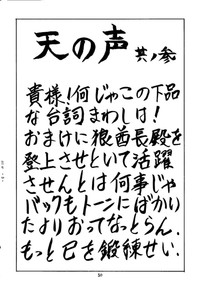 天の声 其ノ参
貴様！何じゃこの下品
な台詞まわしは！
おまけに狼酋長殿を
登上させといて活躍
させんとは何事じゃ
バックもトーンにばかりい
たよりおってなっとらん．
もっと己を鍛練せい．
50